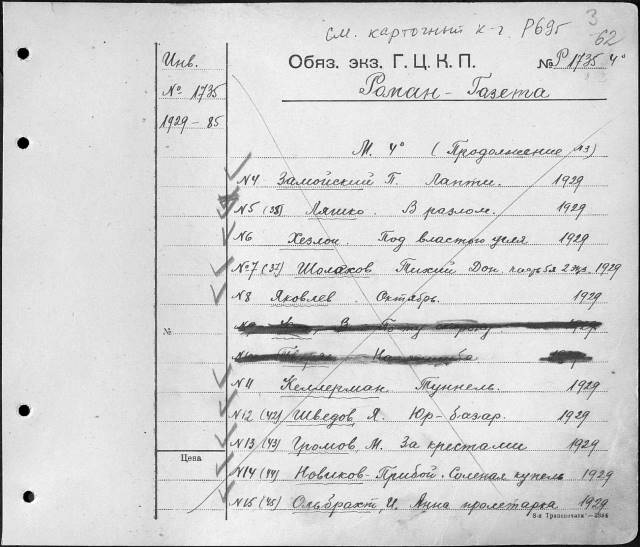 см. карточный к-г. Р69г
3
62
Обяз. экз. Г. Ц. К. П. № Р 1735 4°
Роман-Газета
Инв.
№ 1735
1929-85
М. 4° (Продолжение №3)
N4 Замойский П. Лапти. 1929
N5 (35) Ляшко. В разлом. 1929
N6 Хезлоп. Под властью угля 1929
№7 (37) Шолохов Тихий Дон. 2 экз. 1929
N8 Яковлев. Октябрь. 1929
№
N11 Келлерман Туннель. 1929
N12 (42) Шведов, Я. Юр-базар. 1929
N13 (43) Громов, М. За крестами 1929
N14 (44) Новиков-Прибой. Соленая купель 1929
N15 (45) Ольбрахт, И. Анна пролетарка 1929
Цена